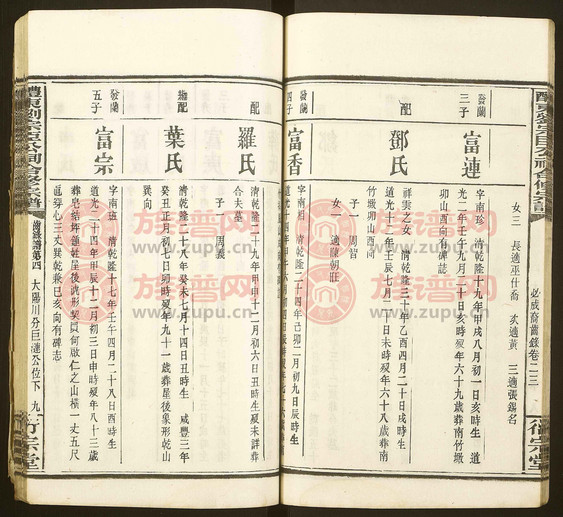 女三 長適巫仕喬 次適黃 三適張錫名
必成裔齒錄卷二三
衍宗堂
發蘭三子
富連
字南珍 清乾隆十九年甲戌八月初一日亥時生 道
光二年壬午九月二十日亥時歿年六十九歲葬南竹墩
卯山酉向有碑誌
配
鄧氏
祥雲之女 清乾隆三十年乙酉四月二十日戌時生
道光十二年壬辰七月二十日未時歿年六十八歲葬南
竹墩卯山酉向
子一 周智
女一 適薛朝莊
發蘭四子
富香
字南相 清乾隆二十四年己卯二月初九日寅時生
配
羅氏
清乾隆二十九年甲申十二月初六日丑時生歿未詳葬
合夫墓
子一 周義
繼配
葉氏
清乾隆二十八年癸未七月十四日丑時生 咸豐三年
癸丑正月初七日卯時歿年九十一歲葬屋後象形乾山
巽向
發蘭五子
富宗
字南班 清乾隆十七年壬午四月二十八日酉時生
道光二十四年甲辰十二月初三日申時歿年八十三歲
葬皂結坪鍾姓屋後虎形契買何啟仁之山橫一丈五尺
直穿心三丈巽乾兼巳亥向有碑志
醴東劉宗臣公祠會修宗譜
大陽川分巨漣公位下
九
衍宗堂
族譜网
www.zupu.cn